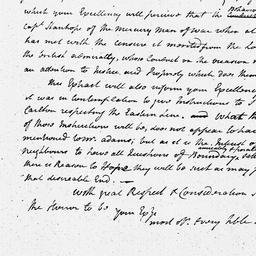 which your Excellency will perceive that the
Capt Stanhope of the Mercury Man of war when at
has met with the Censure it merited from the Lo
the british admiralty, whose Conduct on the occasion
an attention to Justice and Propriety which does them
This Extract will also inform your Excellency
it was in Contemplation to give Instructions to
Carlton respecting the Eastern Line, and what the
of those Instructions will be, does not appear to have
mentioned to mr adams; but as it is the Interest of
neighbours to have all Questions of Boundary settled
there is Reason to Hope they will be such as may
that desireable End.
With great Respect & Consideration
the Honor to be your Exys
most ob. & very hble